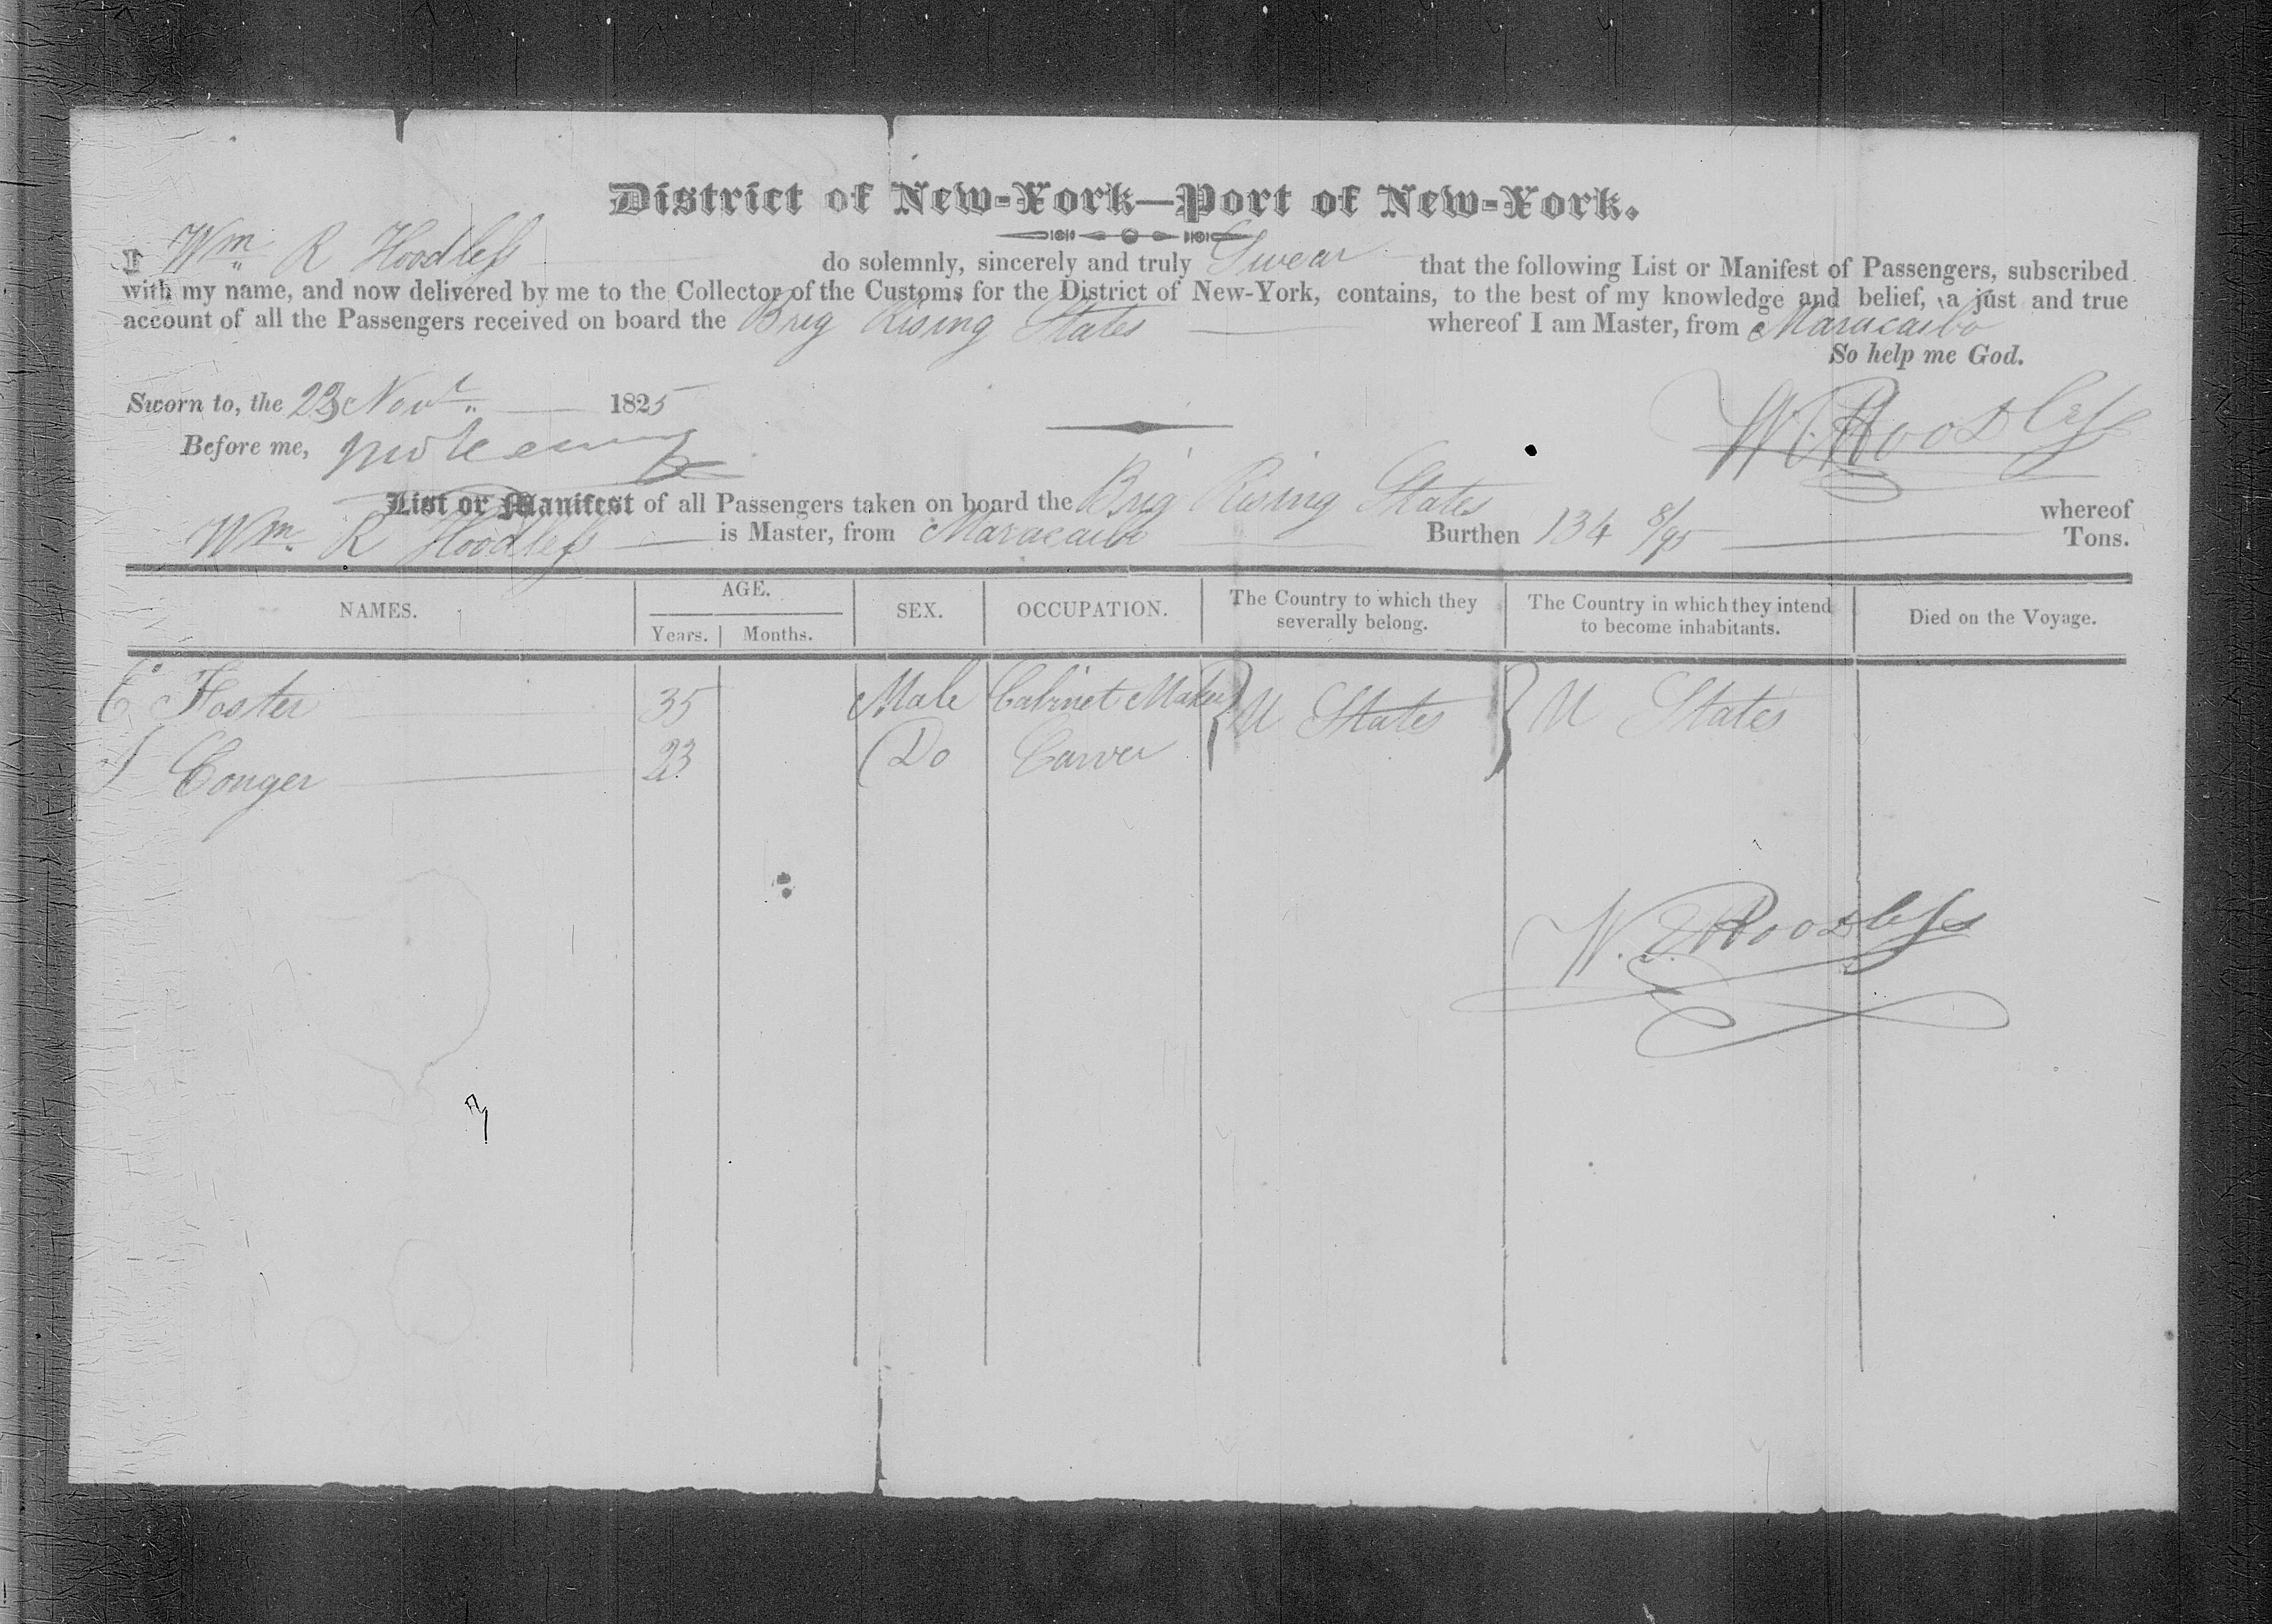 District of New-York—Port of New-York.
I Wm. R Hoodless do solemnly, sincerely and truly Swear that the following List or Manifest of Passengers, subscribed
with my name, and now delivered by me to the Collector of the Customs for the District of New-York, contains, to the best of my knowledge and belief, a just and true
account of all the Passengers received on board the Brig Rising States whereof I am Master, from Maracaibo
So help me God.
Sworn to, the 23 Novr. 1825
Before me,
W. R Hoodless
List or Manifest of all Passengers taken on board the Brig Rising States whereof
Wm. R Hoodless is Master, from Maracaibo Burthen 134 8/95 Tons.
NAMES. AGE. SEX. OCCUPATION. The Country to which they severally belong. The Country in which they intend to become inhabitants. Died on the Voyage.
Years. Months.
E Foster 35 Male Cabinet Maker U States U States
Conger 23 Do Carver
W. R Hoodless